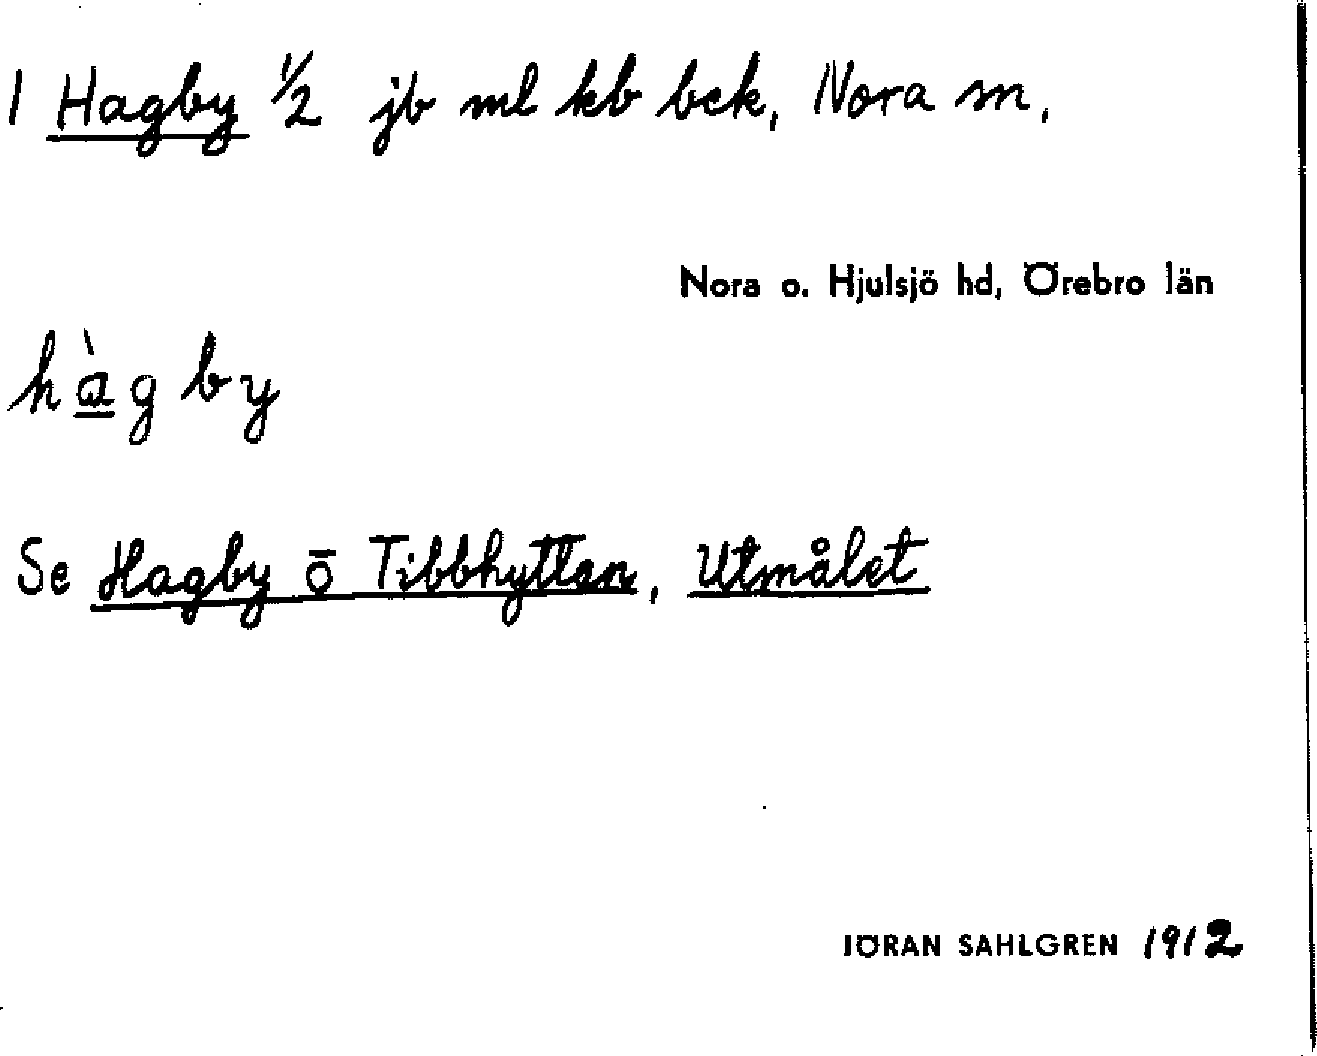 1 Hagby 1/2 jb ml kb bck, Nora sn,
Nora o. Hjulsjö hd, Örebro län
hàg by
Se Hagby o Tibbhyttan, Utmålet
JÖRAN SAHLGREN 1912